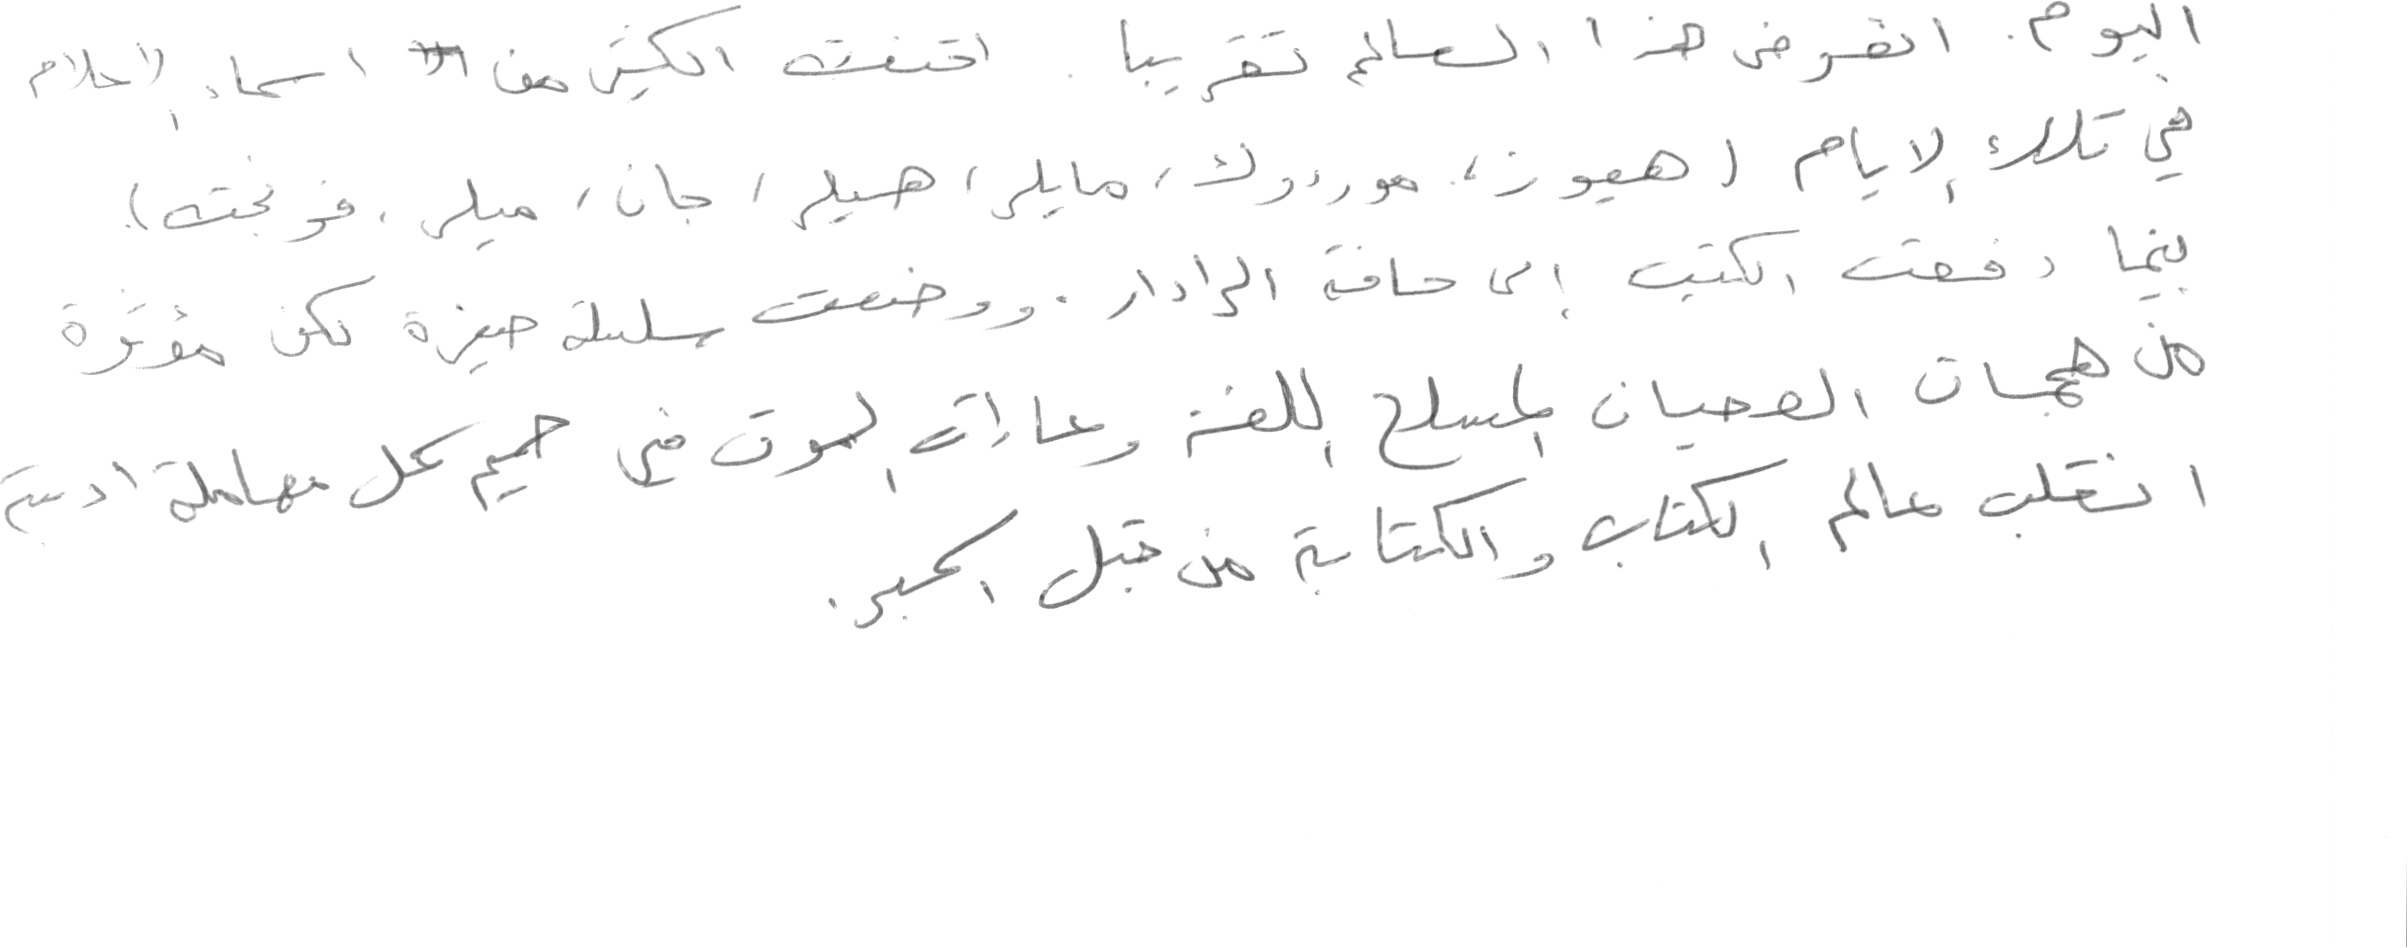 اليوم. انقرض هذا العالم تقريبا. اختفت الكثير من اسماء الاحلام
في تلك الايام (هيوز، موردوك، مايلر، هيلر، جان، ميلر، فونجت).
بينما دفعت الكتب إلى حافة الرادار. ووضعت سلسلة صغيرة لكن مؤثرة
من هجمات العصيان المسلح اللغة وعارات الموت في صميم كل معاملة ادبية
انقلب عالم الكتاب والكتابة من قبل الحبر.